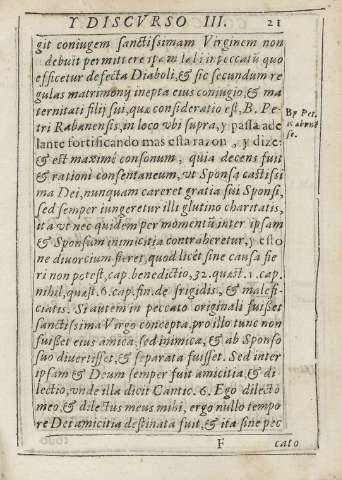 Y DISCVRSO III. 21
git coniugem sanctissimam Virginem non
debuit permittere ipam labi in peccatũ quo
efficetur defecta Diaboli, & sic secundum re
gulas matrimonij inepta eius coniugio, & ma
ternitati filij sui, quæ consideratio est, B. Pe
tri Rabanensis, in loco vbi supra, y passa ade
lante fortificando mas esta razon, y dize:
& est maximè consonum, quia decens fuit
& rationi consentaneum, vt Sponsa castissi
ma Dei, nunquam careret gratia sui Sponsi,
sed semper iungeretur illi glutino charitatis,
ita vt nec quidem per momentũ inter ipsam
& Sponsum inimicitia contraheretur, y esto
ne diuorcium fieret, quod licèt sine causa fie
ri non potest, cap. benedictio, 32. quæst. 1. cap.
nihil, quæst. 6. cap. fin. de frigidis, & malefi-
ciatis. Si autem in peccato originali fuisset
sanctissima Virgo concepta, pro illo tunc non
fuisset eius amica, sed inimica, & ab Sponso
suo diuertisset, & separata fuisset. Sed inter
ipsam & Deum semper fuit amicitia, & di
lectio, vnde illa dicit Cantic. 6. Ego dilecto
meo, & dilectus meus mihi, ergo nullo tempo
re Dei amicitia destinata fuit, & ita sine pec
F cato
By Pet.